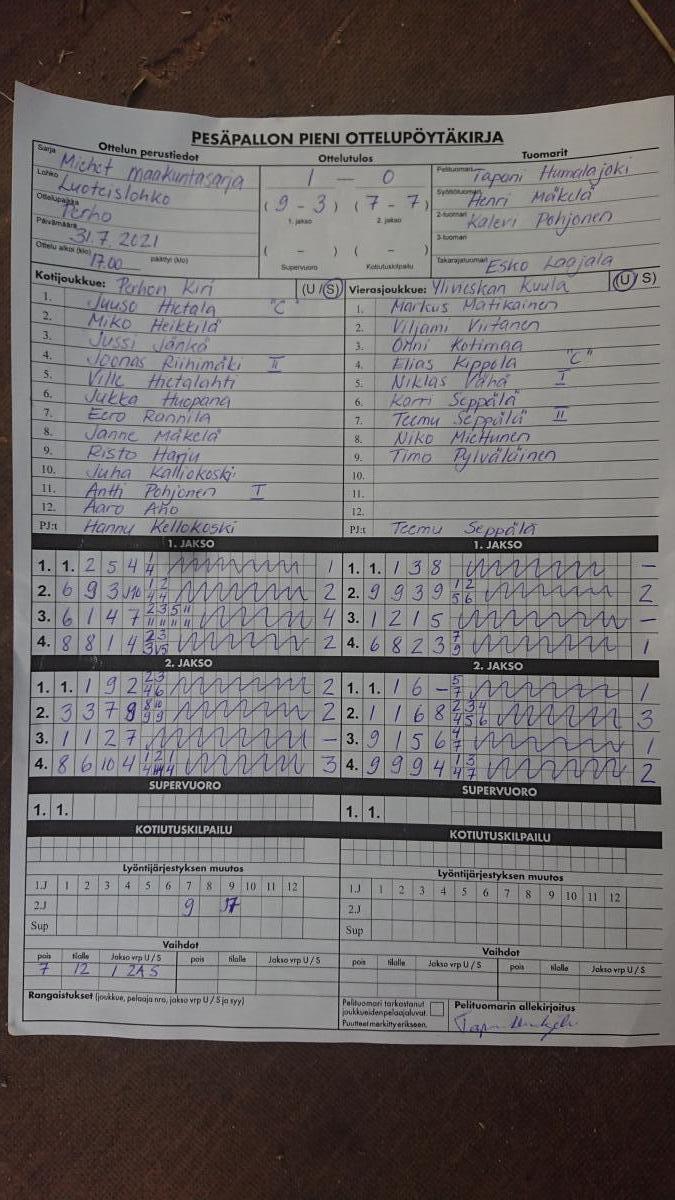 PESÄPALLON PIENI OTTELUPÖYTÄKIRJA
Ottelun perustiedot
Sarja Miehet Maakuntasarja
Lohko Luoteislohko
Ottelupaikka Perho
Päivämäärä 31.7.2021
Ottelu alkoi (klo) 17.00 päättyi (klo)
Ottelutulos
1 — 0
( 9 - 3 ) ( 7 - 7 )
1. jakso 2. jakso
( - ) ( - )
Supervuoro Kotiutuskilpailu
Tuomarit
Pelituomari Tapani Humalajoki
Syöttötuomari Henri Mäkelä
2-tuomari Kalevi Pohjonen
3-tuomari
Takarajatuomari Esko Laajala
Kotijoukkue: Perhon Kiri (U / S)
1. Juuso Hietala "C"
2. Miko Heikkilä
3. Jussi Jänkä
4. Joonas Riihimäki II
5. Ville Hietalahti
6. Jukka Huopana
7. Eero Rannila
8. Janne Mäkelä
9. Risto Harju
10. Juha Kalliokoski
11. Antti Pohjonen I
12. Aaro Aho
PJ:t Hannu Kellokoski
Vierasjoukkue: Ylivieskan Kuula (U / S)
1. Markus Matikainen
2. Viljami Viitanen
3. Onni Kotimaa
4. Elias Kippola "C"
5. Niklas Vähä I
6. Karri Seppälä
7. Teemu Seppälä II
8. Niko Miettunen
9. Timo Pylväläinen
10.
11.
12.
PJ:t Teemu Seppälä
1. JAKSO
1. 1. 2 5 4 1
2. 6 9 3 2
3. 6 1 4 7 4
4. 8 8 1 4 2
1. JAKSO
1. 1. 1 3 8 –
2. 9 9 3 9 1 2 5 6 2
3. 1 2 1 5 –
4. 6 8 2 3 7 9 1
2. JAKSO
1. 1. 1 9 2 2 3 4 6 2
2. 3 3 7 9 2
3. 1 1 2 7 –
4. 8 6 10 4 3
2. JAKSO
1. 1. 1 6 – 5 7 1
2. 1 1 6 8 2 3 4 4 5 6 3
3. 9 1 5 6 4 7 1
4. 9 9 9 4 1 3 4 7 2
SUPERVUORO
1. 1.
SUPERVUORO
1. 1.
KOTIUTUSKILPAILU
KOTIUTUSKILPAILU
Lyöntijärjestyksen muutos
1.J 1 2 3 4 5 6 7 8 9 10 11 12
2.J 9
Sup
Lyöntijärjestyksen muutos
1.J 1 2 3 4 5 6 7 8 9 10 11 12
2.J
Sup
Vaihdot
pois tilalle Jakso vrp U / S pois tilalle Jakso vrp U / S
7 12 1 2A S
Vaihdot
pois tilalle Jakso vrp U / S pois tilalle Jakso vrp U / S
Rangaistukset (joukkue, pelaaja nro, jakso vrp U / S ja syy)
Pelituomari tarkastanut
joukkueiden pelaajaluvat.
Puutteet merkitty erikseen.
Pelituomarin allekirjoitus